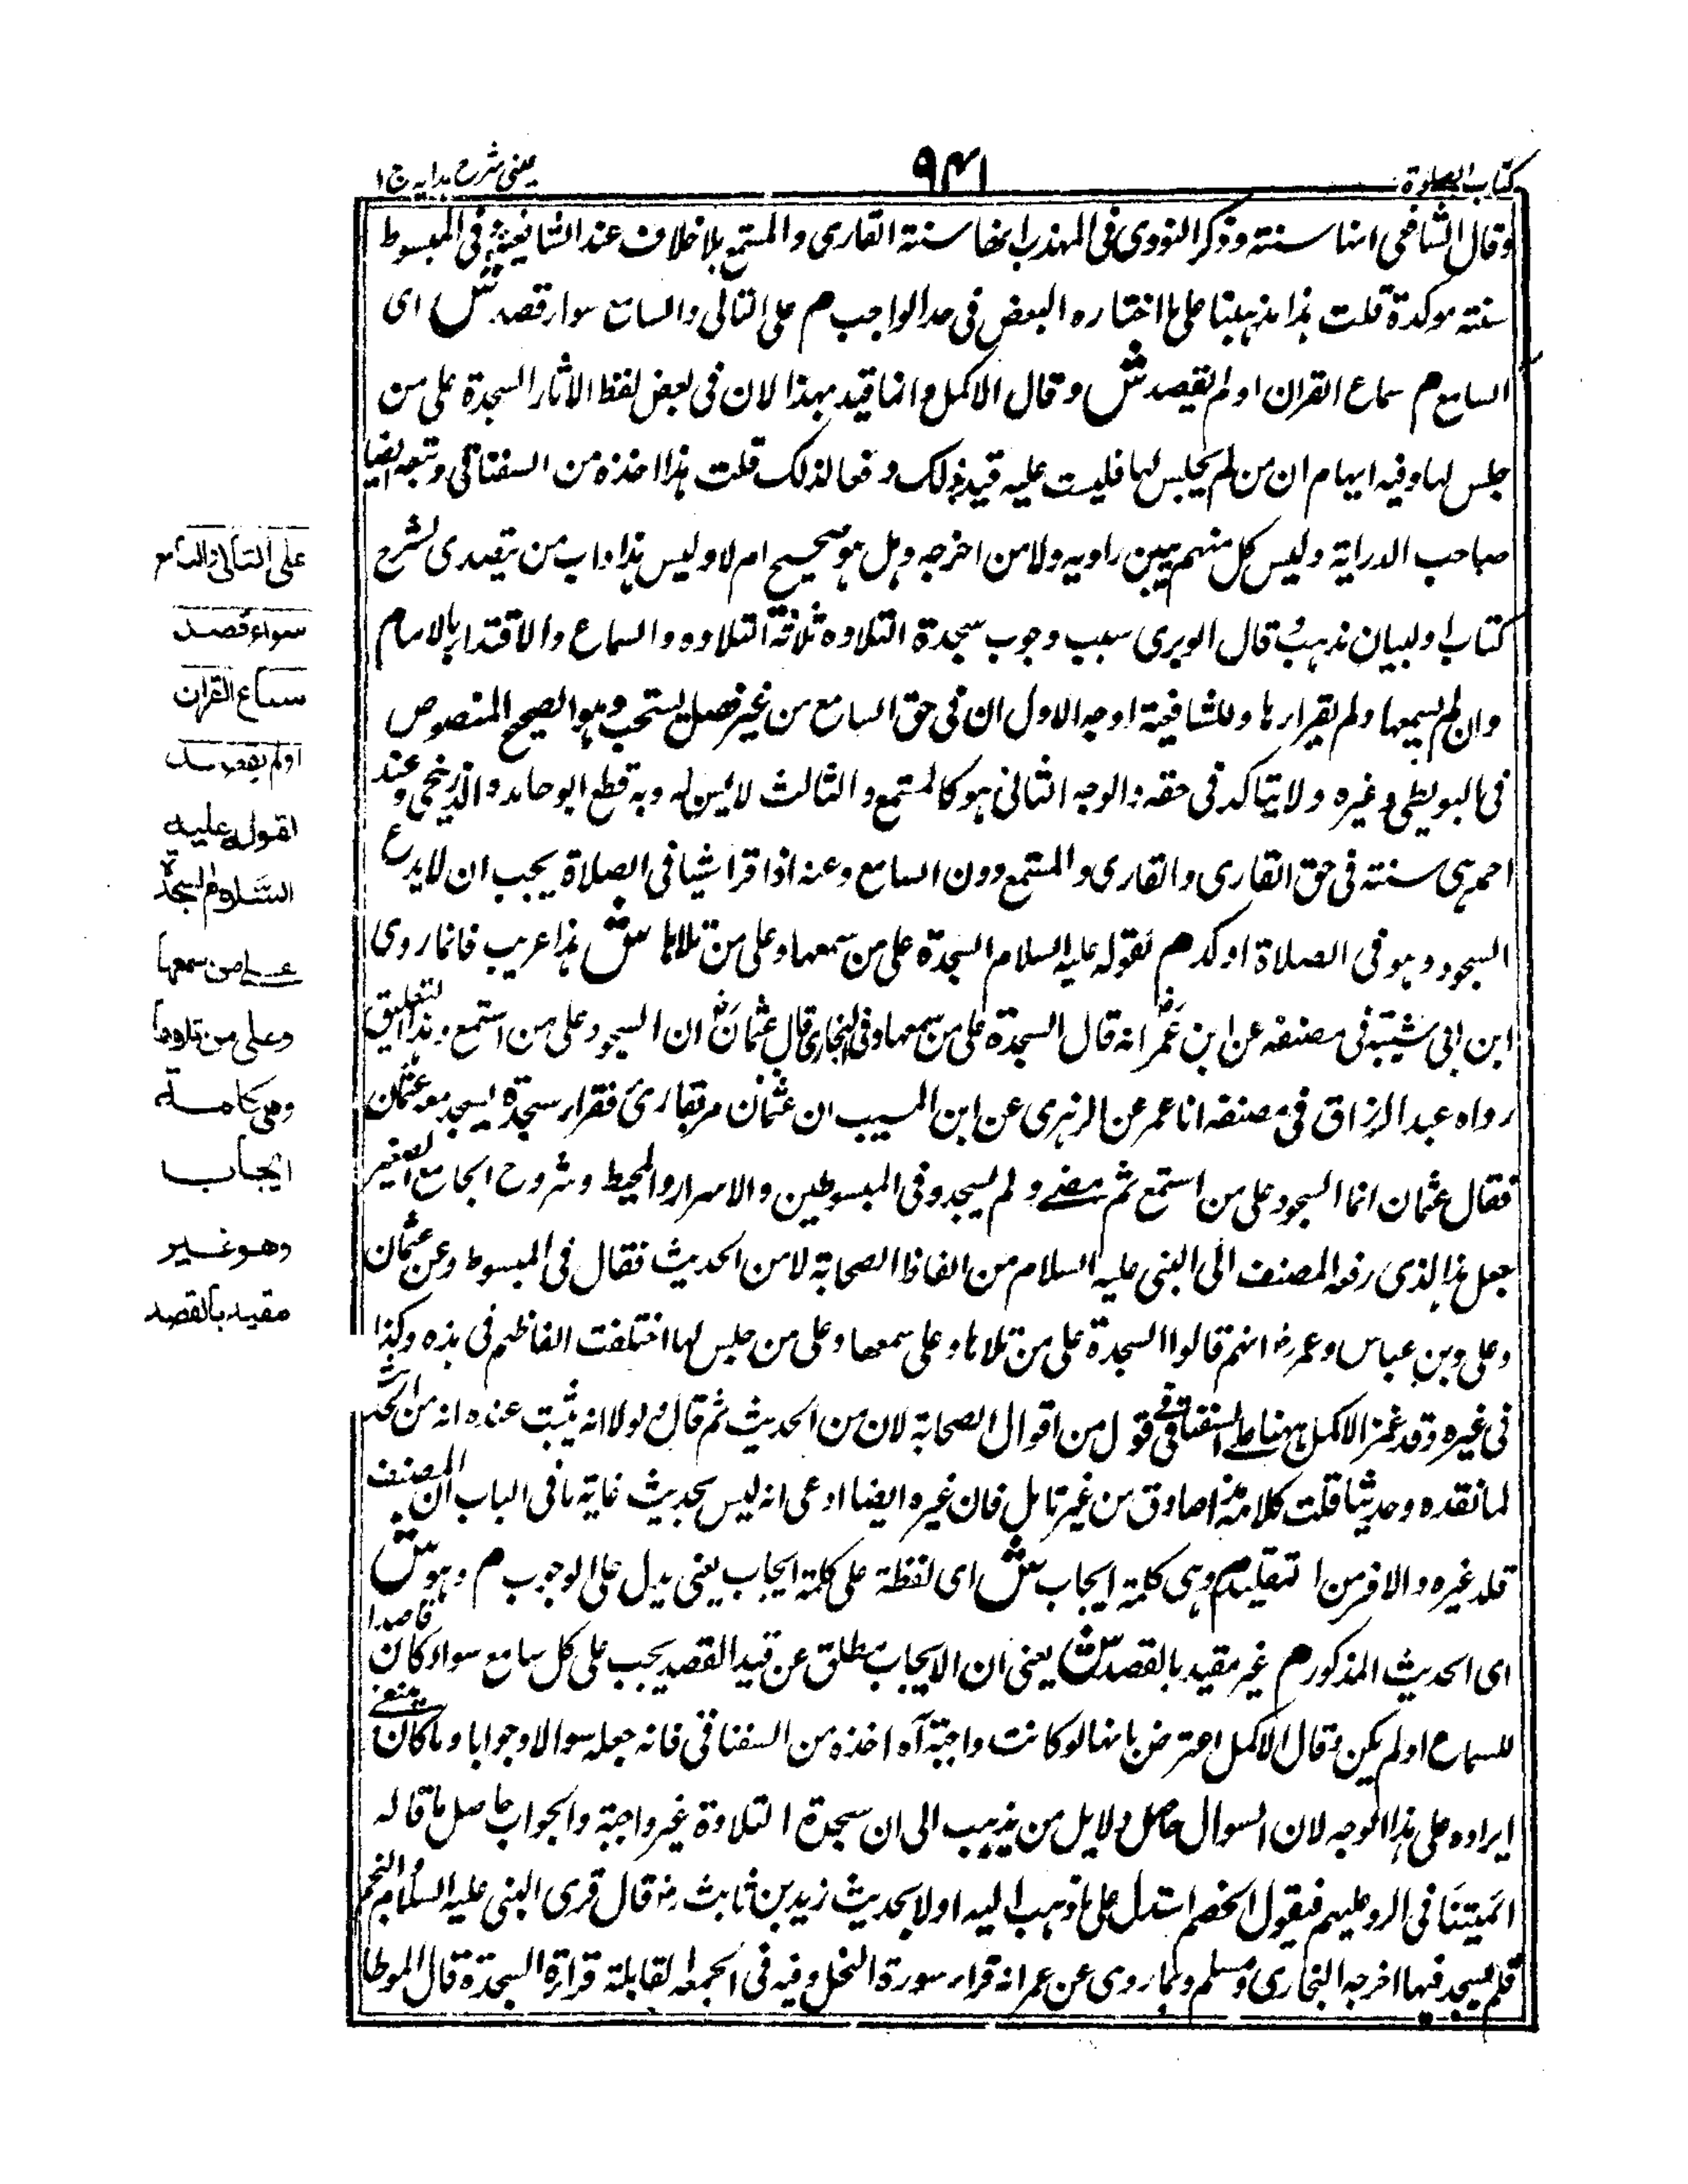 كتاب الصلوة
٩٤١
عینی شرح ہدایہ ج ١
وقال الشافعی انها سنته وذكر النووی فی المهذب انها سنته القاری والمستمع بلا خلاف عند الشافعیة وفی المبسوط
سنته موكدة قلت هذا مذهبنا علی ما اختاره البعض فی حد الواجب م علی التالی والسامع سواء قصد ش ای
السامع م سماع القران او لم یقصد ش وقال الاكمل وانما قید بهذا لان فی بعض لفظ الاثار السجدة علی من
جلس لها وفیه ایهام ان من لم یجلس لها فلیست علیه قید بذلك دفعا لذلك قلت هذا اخذه من السفناقی وتبعه ایضا
صاحب الدرایة ولیس كل منهم یبین راویه ولا من اخرجه وهل هو صحیح ام لا ولیس هذا داب من یتصدی لشرح
كتاب او لبیان مذهب قال الوبری سبب وجوب سجدة التلاوه ثلاثة التلاوه والسماع والاقتداء بالامام
وان لم یسمعها ولم یقرأها وللشافعیة اوجه الاول ان فی حق السامع من غیر قصد یستحب وهو الصحیح المنصوص
فی البویطی وغیره ولا یتاكد فی حقه والوجه الثانی هو كالمستمع والثالث لا یسن له وبه قطع ابو حامد والبندنیجی وعند
احمد هی سنته فی حق القاری والقاری والمستمع دون السامع وعنه اذا قرا شیا فی الصلاة یجب ان لا یدع
السجود وهو فی الصلاة اوكد م لقوله علیه السلام السجدة علی من سمعها وعلی من تلاها ش هذا غریب فانما روی
ابن ابی شیبة فی مصنفه عن ابن عمر انه قال السجدة علی من سمعها وفی البخاری قال عثمان ان السجود علی من استمع وهذا التعلیق
رواه عبد الرزاق فی مصنفه انا عمر عن الزهری عن ابن المسیب ان عثمان مر بقاری فقرا سجدة لیسجد معه عثمان
فقال عثمان انما السجود علی من استمع ثم مضی ولم یسجد وفی المبسوطین والاسرار والمحیط وشروح الجامع الصغیر
جعل هذا الذی رفعه المصنف الی النبی علیه السلام من الفاظ الصحابة لا من الحدیث فقال فی المبسوط وعن عثمان
وعلی وبن عباس وعمر رض انهم قالوا السجدة علی من تلاها وعلی سمعها وعلی من جلس لها اختلفت الفاظهم فی هذه وكذا
فی غیره وقد غمز الاكمل ههنا علی السفناقی فی قول من اقوال الصحابة لان من الحدیث ثم قال ولولا انه یثبت عنده انه من الحدیث
لما نقده وحدیثا قلت كلامه هذا صادق من غیر تامل فان غیره ایضا ادعی انه لیس بحدیث غایة ما فی الباب ان المصنف
قلد غیره والافر من التقلید م وهی كلمة ایجاب ش ای لفظة علی كلمة ایجاب یعنی یدل علی الوجوب م وهو ش
ای الحدیث المذكور م غیر مقید بالقصد ش یعنی ان الایجاب مطلق عن قید القصد یجب علی كل سامع سواء كان قاصدا
للسماع او لم یكن وقال الاكمل احترض بانها لو كانت واجبة آه اخذه من السفناقی فانه جعله سوالا وجوابا وما كان ینبغی
ایراده علی هذا الوجه لان السوال حاصل دلایل من یذهب الی ان سجدة التلاوة غیر واجبة والجواب حاصل ما قاله
ائمیتنا فی الرد علیهم فیقول الخصم استدل علی ما ذهب الیه اولا بحدیث زید بن ثابت رض قال قری النبی علیه السلام والنجم
فلم یسجد فیها اخرجه البخاری ومسلم وبما روی عن عمر انه قراء سورة النحل وفیه فی الجمعة لقابلة قراءة السجدة قال الموطا
علی التالی والسامع
سواء قصد
سماع القران
اولم یقصد
لقوله علیه
السلام السجدة
علی من سمعها
وعلی من تلاوها
وهی كلمة
ایجاب
وهو غیر
مقید بالقصد